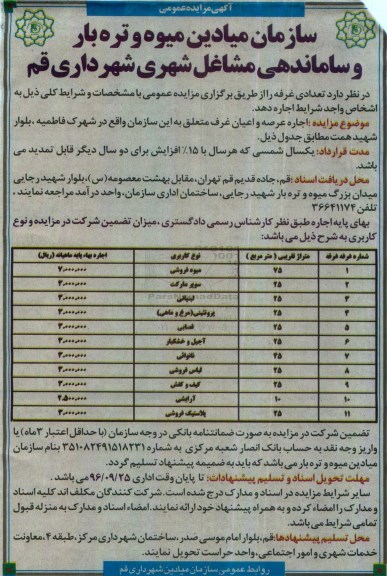 آگهی مزایده عمومی
سازمان میادین میوه و تره بار
و ساماندهی مشاغل شهری شهرداری قم
در نظر دارد تعدادی غرفه را از طریق برگزاری مزایده عمومی با مشخصات و شرایط کلی ذیل به
اشخاص واجد شرایط اجاره دهد.
موضوع مزایده : اجاره عرصه و اعیان غرف متعلق به این سازمان واقع در شهرک فاطمیه ، بلوار
شهید همت مطابق جدول ذیل.
مدت قرارداد: یکسال شمسی که هر سال با ۱۵٪ افزایش برای دو سال دیگر قابل تمدید می
باشد.
محل دریافت اسناد : قم، جاده قدیم قم تهران، مقابل بهشت معصومه(س)، بلوار شهید رجایی
میدان بزرگ میوه و تره بار شهید رجایی، ساختمان اداری سازمان، واحد درآمد مراجعه نمایند ،
تلفن ۳۶۶۴۱۱۷۴
بهای پایه اجاره طبق نظر کارشناس رسمی دادگستری ، میزان تضمین شرکت در مزایده و نوع
کاربری به شرح ذیل می باشد:
شماره غرفه غرفه متراژ تقریبی ( متر مربع ) نوع کاربری اجاره بهاء پایه ماهیانه (ریال)
۱ ۷۵ میوه فروشی
۲ ۲۵ سوپر مارکت ۳.۰۰۰.۰۰۰
۳ ۲۵ لبنیاتی ۳.۰۰۰.۰۰۰
۴ ۲۵ پروتئینی(مرغ و ماهی) ۳.۰۰۰.۰۰۰
۵ ۲۵ قصابی ۳.۰۰۰.۰۰۰
۶ ۲۵ آجیل و خشکبار ۳.۰۰۰.۰۰۰
۷ نانوائی ۳.۰۰۰.۰۰۰
۸ ۲۵ لباس فروشی ۳.۰۰۰.۰۰۰
۹ ۲۵ کیف و کفش ۳.۰۰۰.۰۰۰
۱۰ ۱۰ آرایشی ۲.۵۰۰.۰۰۰
۱۱ ۲۵ پلاستیک فروشی ۳.۰۰۰.۰۰۰
تضمین شرکت در مزایده به صورت ضمانتنامه بانکی در وجه سازمان (با حداقل اعتبار ۳ماه) یا
واریز وجه نقد به حساب بانک انصار شعبه مرکزی به شماره ۳۵۱۰۸۲۴۹۱۵۱۸۲۳۱ بنام سازمان
میادین میوه و تره بار می باشد که باید به ضمیمه پیشنهاد تسلیم گردد.
مهلت تحویل اسناد و تسلیم پیشنهادات: تا پایان وقت اداری ۹۶/۰۹/۲۵ می باشد .
سایر شرایط مزایده در اسناد و مدارک درج شده است. شرکت کنندگان مکلف اند کلیه اسناد
و مدارک را امضاء کرده و به همراه پیشنهاد خود ارائه نمایند. امضاء اسناد و مدارک به منزله قبول
تمامی شرایط می باشد.
محل تسلیم پیشنهادها: قم، بلوار امام موسی صدر، ساختمان شهرداری مرکز، طبقه ۴، معاونت
خدمات شهری و امور اجتماعی، واحد حراست تحویل نمایند.
روابط عمومی سازمان میادین شهرداری قم